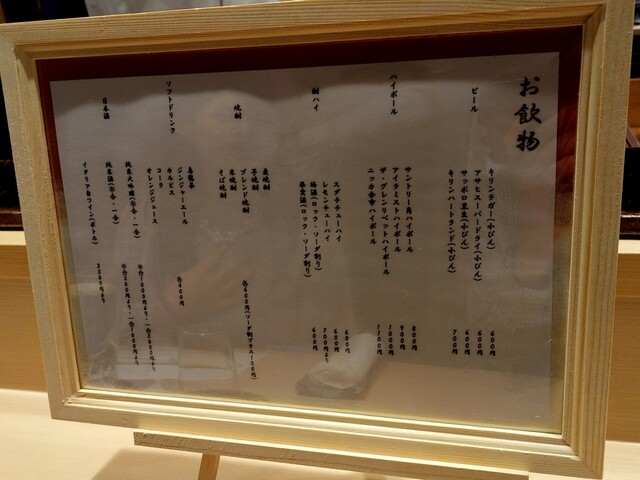 お飲物
ビール
キリンラガー(小びん) 600円
アサヒスーパードライ(小びん) 600円
サッポロ黒生(小びん) 600円
キリンハートランド(小びん) 700円
ハイボール
サントリー角ハイボール 800円
アイラミストハイボール 900円
ザ・グレンリベットハイボール 1000円
ニッカ余市ハイボール 1100円
酎ハイ
スダチチューハイ 600円
レモンチューハイ 600円
梅酒(ロック・ソーダ割り) 700円より
(ロック・ソーダ割り) 600円
焼酎
麦焼酎
芋焼酎
ブレンド焼酎
米焼酎
そば焼酎
各600円(ソーダ割プラス100円)
ソフトドリンク
烏龍茶
ジンジャーエール
カルピス
コーラ
オレンジジュース
各400円
日本酒
純米大吟醸(半合・一合) 半合1000円より・一合2000円より
純米酒(半合・一合) 半合500円より・一合1000円より
イタリア白ワイン(ボトル) 3500円より